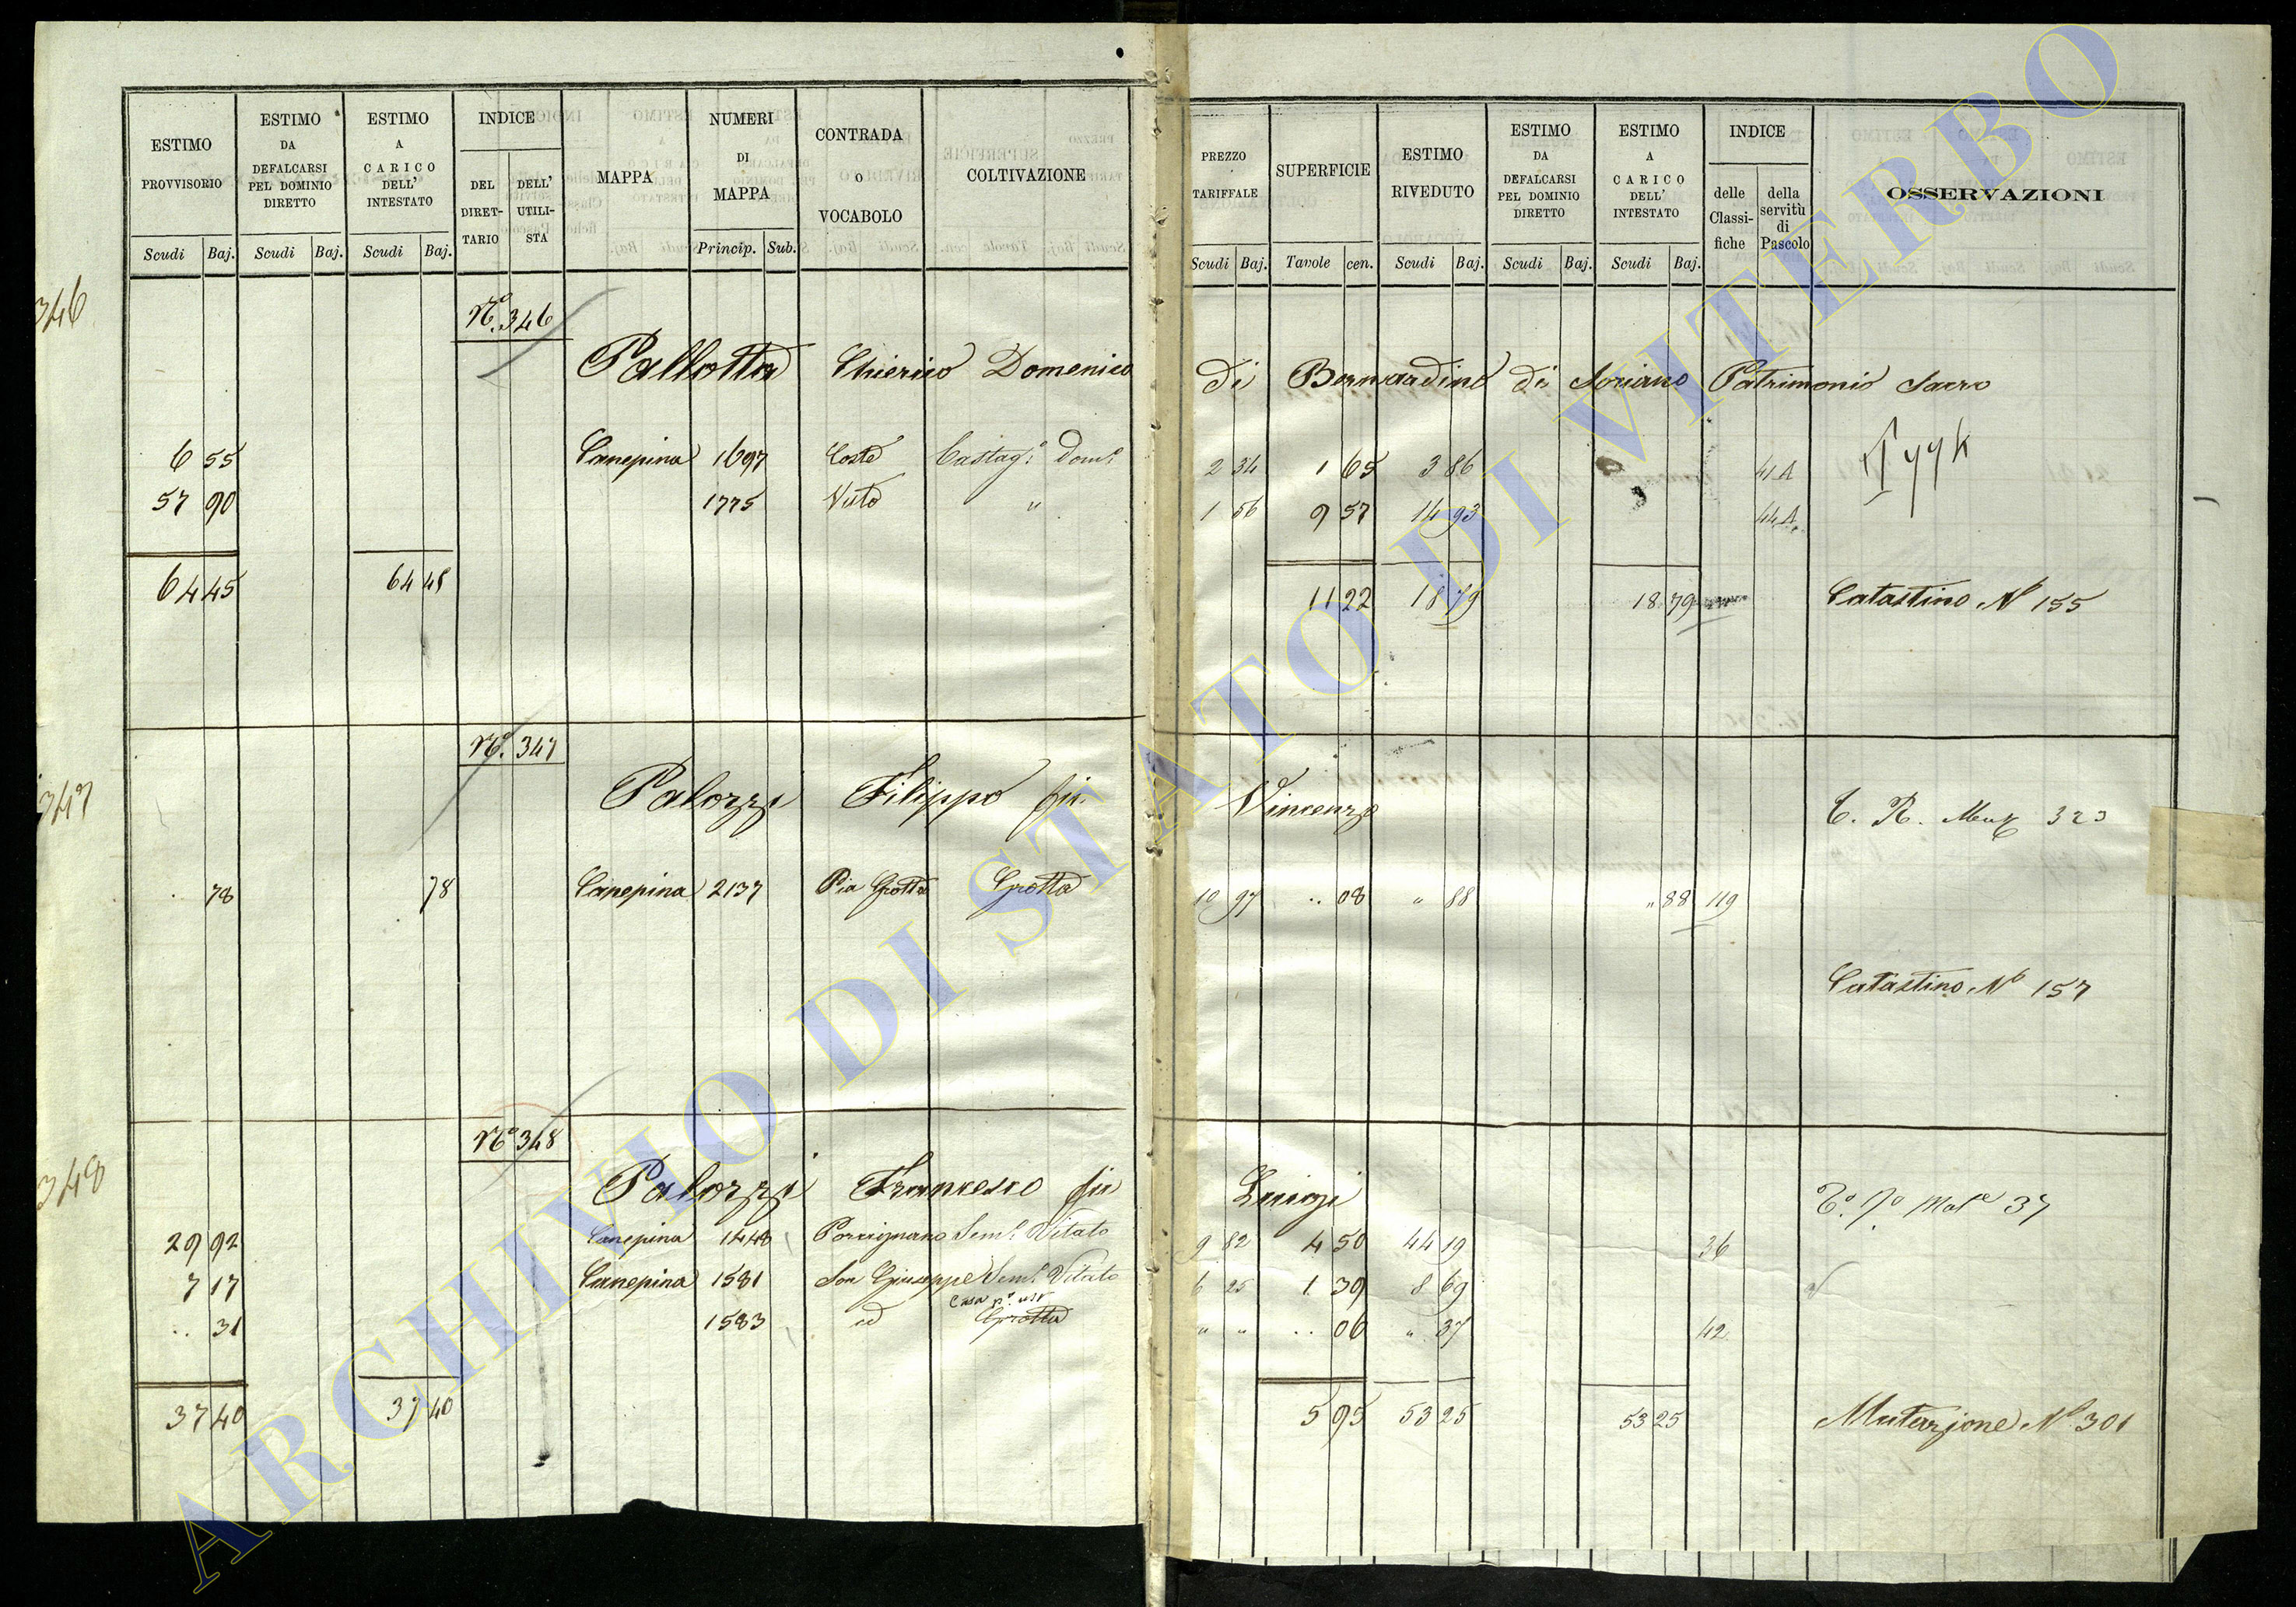 ESTIMO PROVVISORIO Scudi Baj.
ESTIMO DA DEFALCARSI PEL DOMINIO DIRETTO Scudi Baj.
ESTIMO A CARICO DELL' INTESTATO Scudi Baj.
INDICE DEL DIRET-TARIO DELL' UTILI-STA
MAPPA
NUMERI DI MAPPA Princip. Sub.
CONTRADA O VOCABOLO
COLTIVAZIONE
PREZZO TARIFFALE Scudi Baj.
SUPERFICIE Tavole cen.
ESTIMO RIVEDUTO Scudi Baj.
ESTIMO DA DEFALCARSI PEL DOMINIO DIRETTO Scudi Baj.
ESTIMO A CARICO DELL' INTESTATO Scudi Baj.
INDICE delle Classi-fiche della servitù di Pascolo
OSSERVAZIONI
346
Nº. 346
Pallotta Chierico Domenico di Bernardino di Soriano Patrimonio Sacro
6 55 Canepina 1697 Coste Castag. Dom. 2 34 1 65 3 86 41 A
57 90 1775 Vuto " 1 56 9 57 14 93 44 A
64 45 64 45 11 22 18 79 18 79 Catastino Nº 155
347
Nº. 347
Palozzi Filippo fu Vincenzo 323
78 78 Canepina 2137 Pia Grotta Grotta 10 97 .. 08 " 88 " 88 119
Catastino Nº 157
348
Nº 348
Palozzi Francesco fu Luigi 37
29 92 Canepina 1448 Porcignano Sem. Vitato 9 82 4 50 44 19 36
7 17 Canepina 1581 San Giuseppe Sem. Vitato 6 25 1 39 8 69
.. 31 1583 id Casa Grotta " " .. 06 " 37 42
37 40 37 40 5 95 53 25 53 25 Mutazione Nº 301
ARCHIVIO DI STATO DI VITERBO